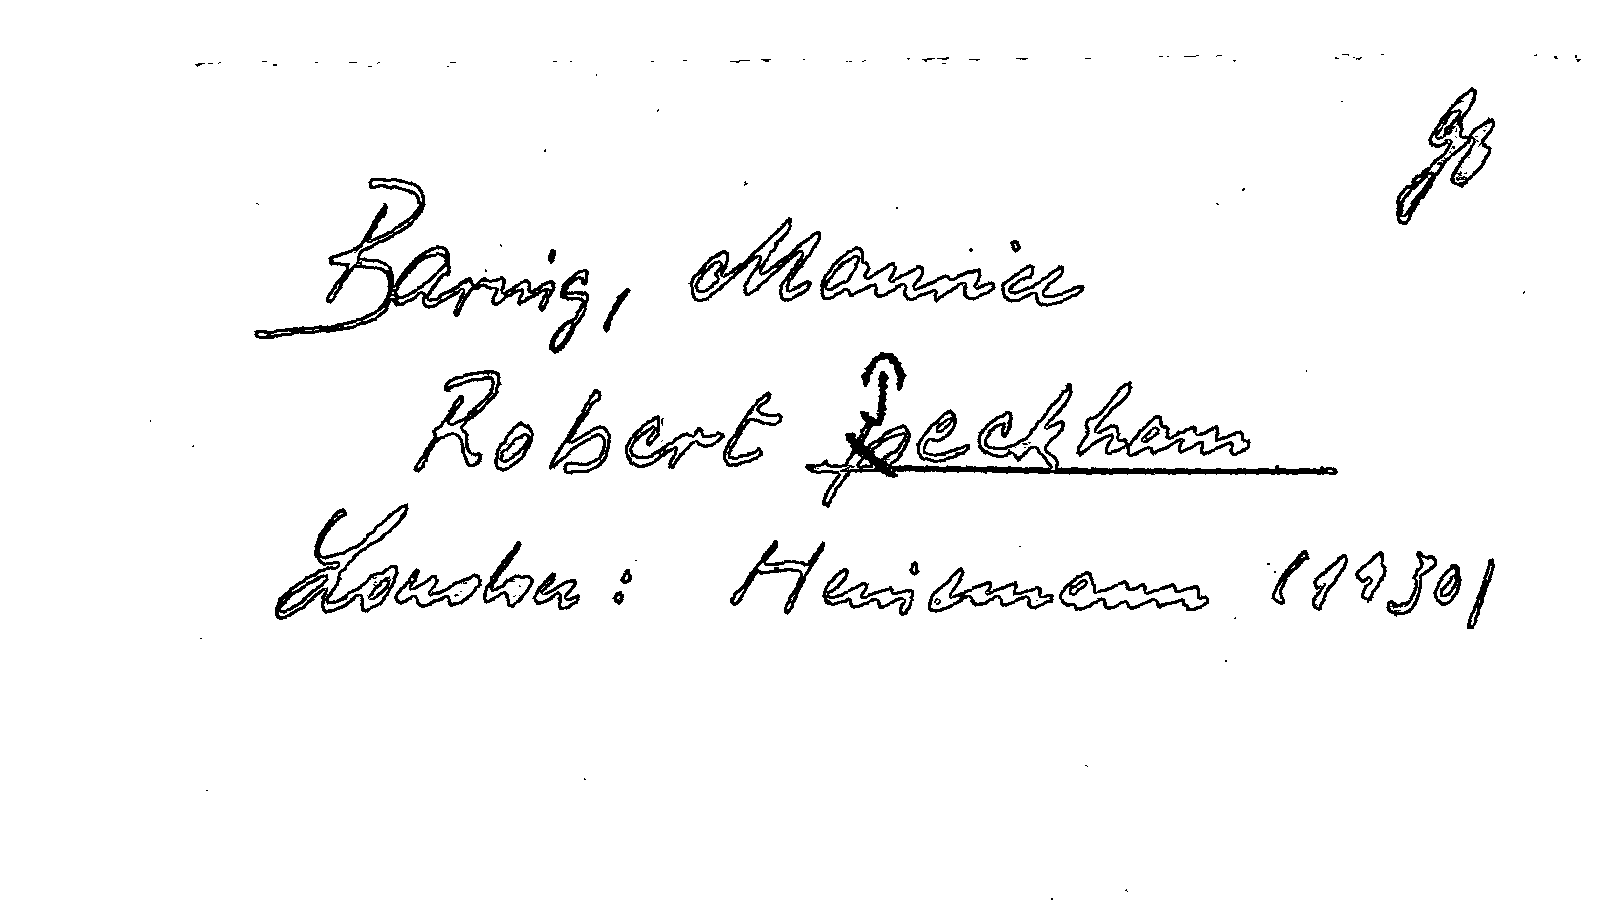 Baring, Maurice
Robert Peckham
London: Heinemann (1930)